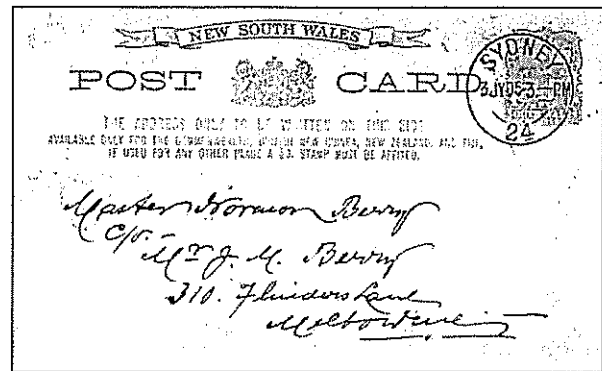 NEW SOUTH WALES
POST CARD
SYDNEY
3 JY 05 3 - PM
24
THE ADDRESS ONLY TO BE WRITTEN ON THIS SIDE
AVAILABLE ONLY FOR THE COMMONWEALTH, BRITISH NEW GUINEA, NEW ZEALAND, AND FIJI,
IF USED FOR ANY OTHER PLACE A STAMP MUST BE AFFIXED.
Master Norman Berry
C/o.
Mr J. M. Berry
310. Flinders Lane
Melbourne